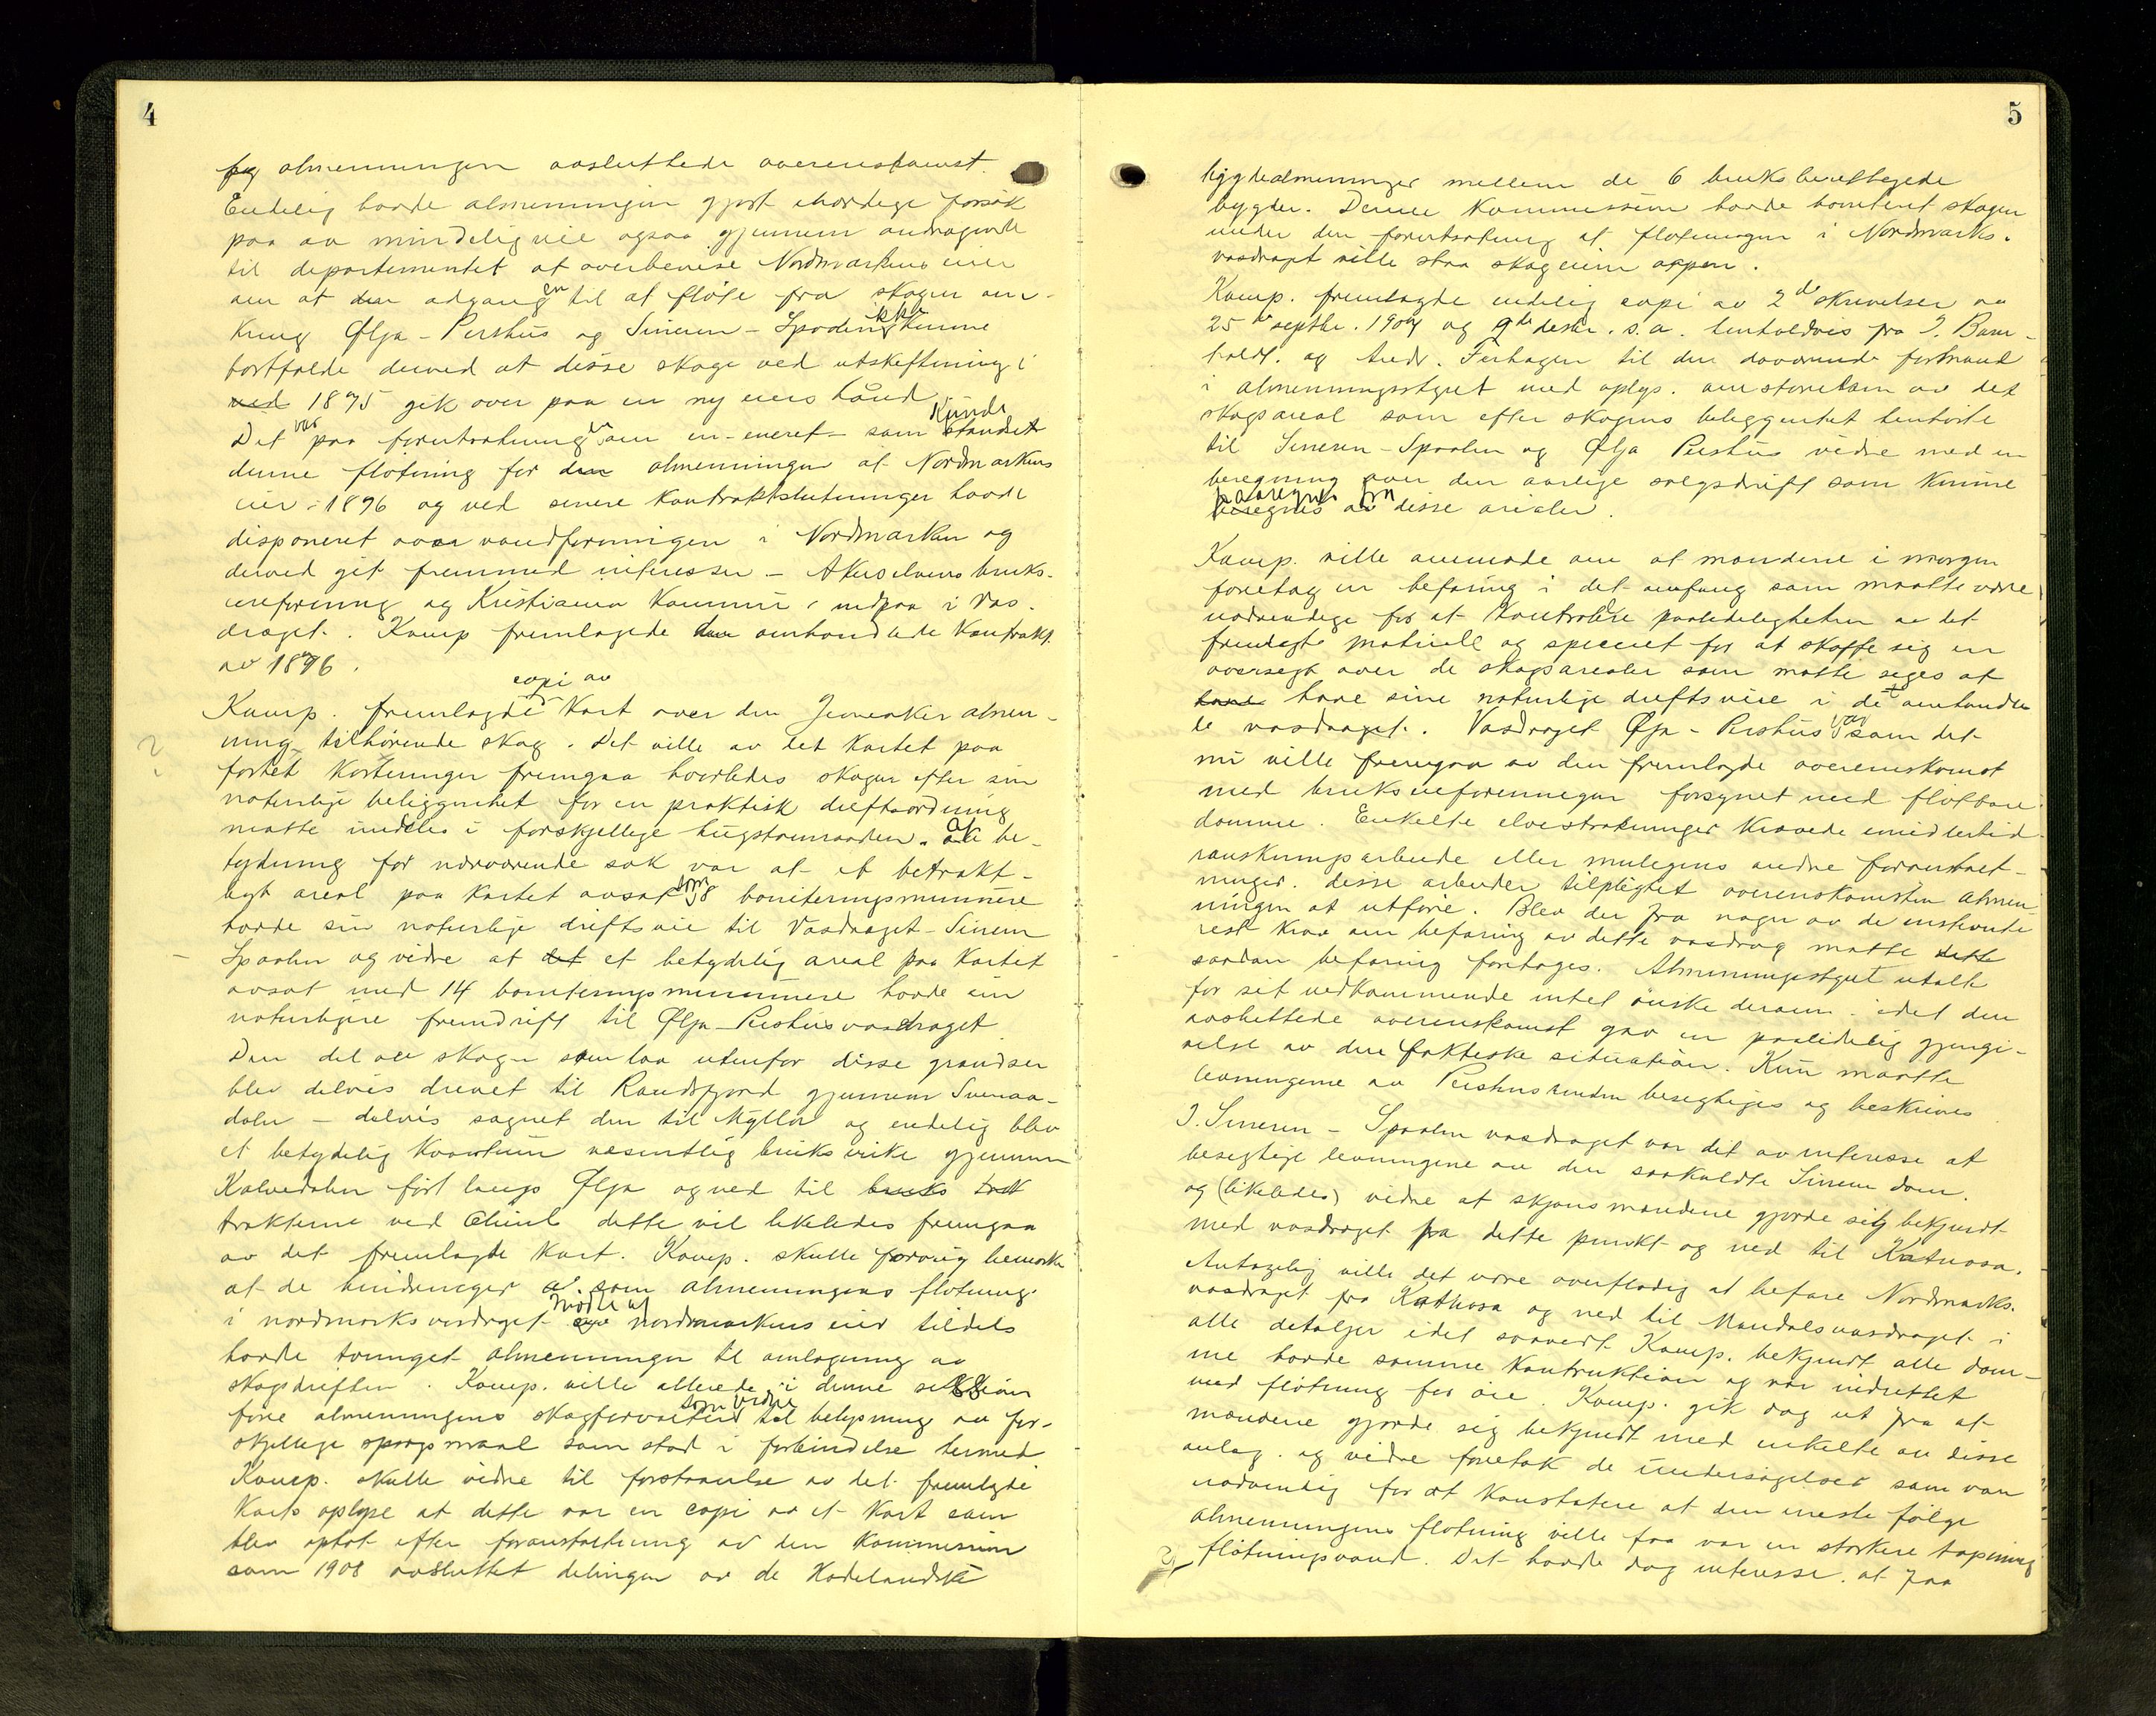 4
og almenningen avsluttede overenskomst.
Endelig havde almenningen gjort ihærdige forsøk
paa av mindelig veie ogsaa gjennem andragende
til departementet at overbevise Nordmarkens eier
om at den adgang en til at fløte fra skogen om-
kring Ølja - Pershus og Sinnern - Spaalen ikke kunne
bortfalde derved at disse skoge ved utskiftning i
ved 1875 gik over paa en ny eiers haand
Det var paa forutsætning en om en eneret som kunde
denne fløtning for den almenningen at Nordmarkens
eier i 1896 og ved senere kontraktslutninger havde
disponeret over vandføringen i Nordmarken og
derved git fremmed interesser - Akerselvens bruks-
eierforening og Kristiania Kommune indpas i vas-
draget. Komp fremlagde den omhandlede kontrakt
av 1896.
Komp. fremlagde copi av kart over den Jevnaker almen-
ning tilhørende skog. Det ville av det kartet paa
førte karteringer fremgaa hvorledes skogen efter sin
naturlige beliggenhet for en praktisk driftsordning
maatte inndeles i forskjellige hugstomraader. Av be-
tydning for nærværende sak var at et betrakt-
ligt areal paa kartet avsat som 58 boniteringsnummere
havde sin naturlige driftsvei til Vasdraget - Sinnern
Spaalen og videre at det et betydelig areal paa kartet
avsat med 14 boniteringsnummere havde sin
naturligere fremdrift til Ølja - Pershusvasdraget
Den del av skogen som laa utenfor disse grændser
blev delvis drevet til Randsfjord gjennem Svenaa-
dalen - delvis sagnet den til Mylla og endelig blev
et betydelig kvantum væsentlig bruksvirke gjennem
Kalvedalen ført langs Ølja og ned til bruks
trakterne ved dette vil likeledes fremgaa
av det fremlagte kart. Komp. skulle forøvrig bemerke
at de hindringer som almenningens fløtning
i nordmarksvasdraget mødte af nordmarkens eier tildels
havde tvunget almenningen til omlægning av
skogsdriften. Komp. ville allerede i denne session
føre almenningens skogforvalter som vidne til belysning av for-
skjellige spørgsmaal som stod i forbindelse hermed
Komp. skulle videre til forstaaelse av det fremlagte
kart oplyse at dette var en copi av et kart som
blev optat efter foranstaltning av den kommission
som 1908 avsluttet delingen av de Hadelandske
5
bygdealmeninger mellem de 6 bruksberettigede
bygder. Denne kommission havde bonitert skogen
under den forutsætning at fløtningen i Nordmarks-
vasdraget ville staa skogeierne aapen.
Komp. fremlagte endelig copi av 2de skrivelser av
25de septbr. 1907 og 9de desbr. s. a. henholdsvis fra
og til den daværende formand
i almenningsstyret med oplys. om størrelsen av det
skogsareal som efter skogens beliggenhet henhørte
til Sinnern - Spaalen og Ølja Pershus videre med en
beregning over den aarlige salgsdrift som kunne
paaregnes fra disse arealer.
Komp. ville anmode om at mændene i morgen
foretog en befaring i det omfang som maatte være
nødvendige for at kontrolere paalideligheten av det
fremlagte materiell og specielt for at skaffe sig en
oversigt over de skogsarealer som maatte siges at
have have sine naturlige driftsveie i det omhandle
de vasdraget. Vasdraget Ølja - Pershus var som det
nu ville fremgaa av den fremlagde overenskomst
med bruksseierforeningen forsynet med fløtbare
damme. Enkelte elvestrækninger krævede imidlertid
rænskningsarbeide eller muligens andre foranstalt-
ninger. disse arbeider tilpligtet overenskomsten almen-
ningen at utføre. Blev der fra nogen av de instevnte
reist krav om befaring av dette vasdrag maatte dette
saadan befaring foretages. Almenningsstyret utalte
for sit vedkommende intet ønske derom - idet den
avsluttede overenskomst gav en paalidelig gjengi-
velse av den faktiske situation. Kun maatte
levningene av Pershusrenden besegtiges og beskrives
I Sinnern - Spaalen vasdraget var det av interesse at
besegtige levningene av den saakaldte Sinnern dam.
og (likeledes) videre at skjønsmændene gjorde sig bekjendt
med vasdraget fra dette punkt og ned til Katnosa.
Antagelig ville det være overflødig at befare Nordmarks-
vasdraget fra Kathosa og ned til Maridalsvasdraget i
alle detaljer idet saavidt Komp. bekjendt alle dam-
me havde samme konstruktion og var indrettet
med fløtning for øie. Komp. gik dog ut fra at
mændene gjorde sig bekjendt med enkelte av disse
anlæg. og videre foretok de undersøgelser som var
nødvendig for at konstatere at den eneste følge
almenningens fløtning ville faa var en stærkere tapning
fløtningsvand. Det havde dog interesse at faa